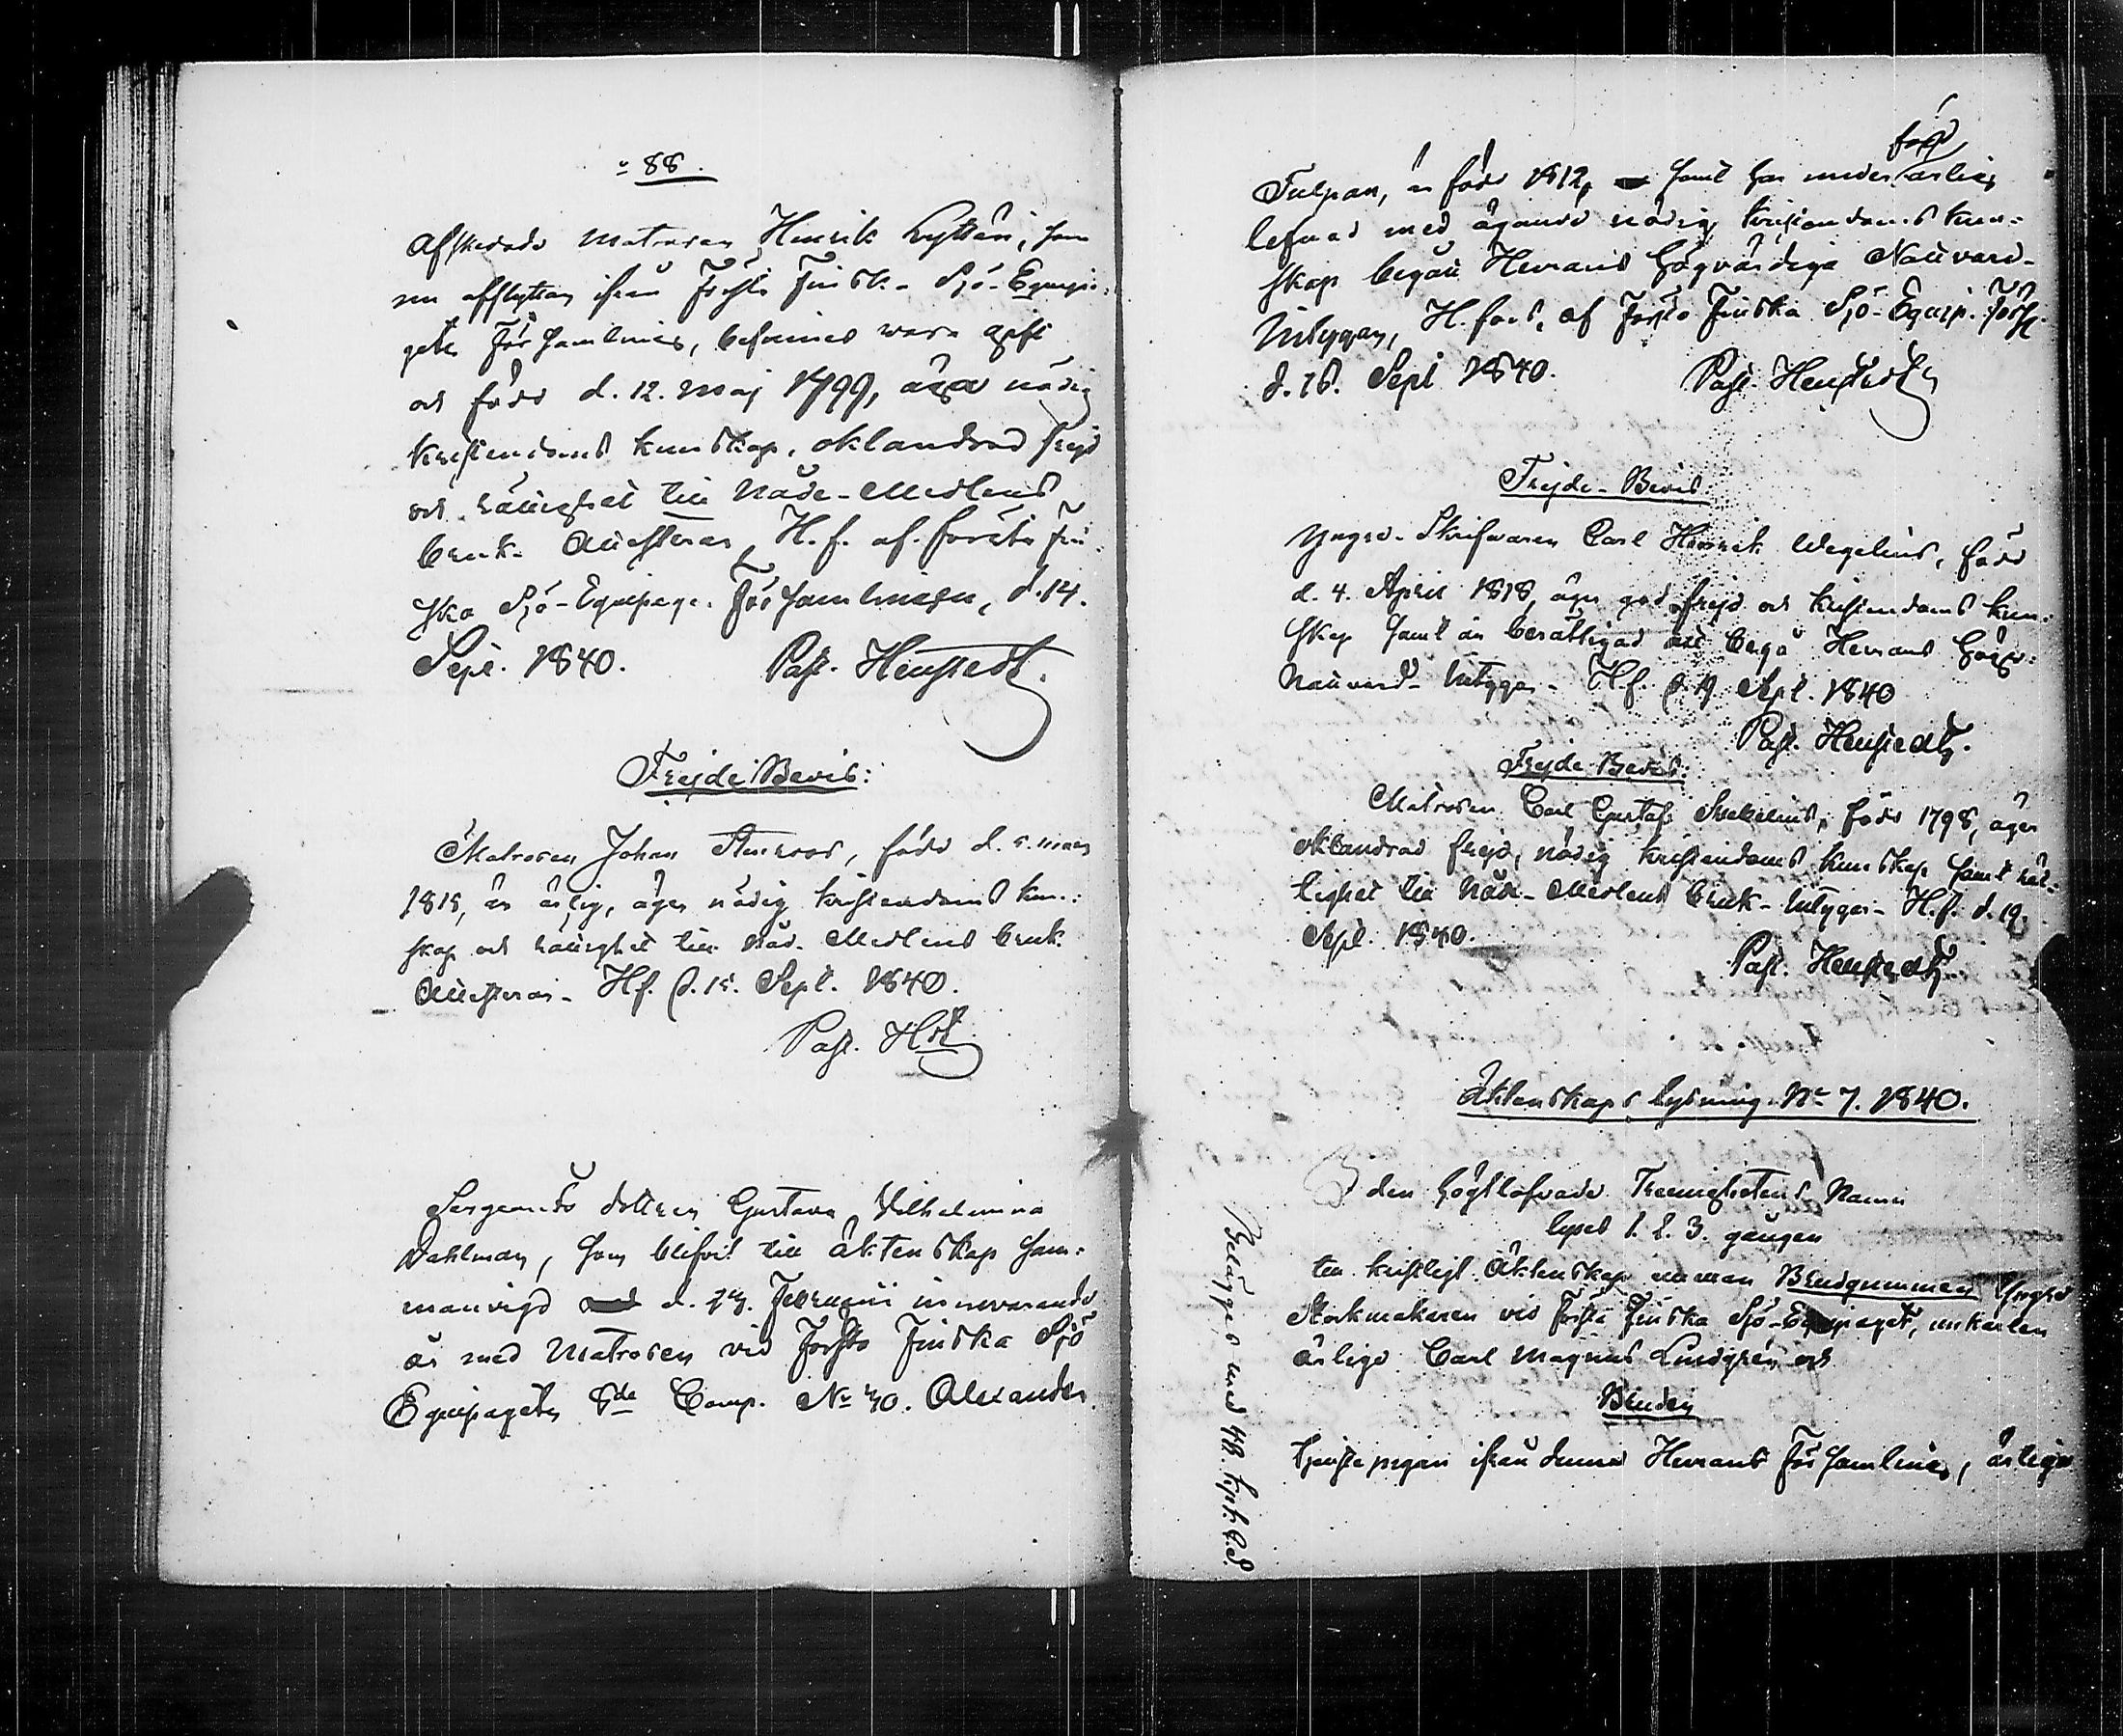 88.
Afskedade Matrosen Henrik Lyttän, som
nu afflyttar ifrån Första Finska Sjö-Equipa-
gets Församling, befinnes wara gift
och född d. 12. Maj 1799, äga nödig
kristendoms kunskap, oklandrad frejd
och rättighet till Nåde-Medlens
bruk. Attesteras, H.f. af första Fin-
ska Sjö-Equipage Församlingen, d. 14.
Sept. 1840. Past. Henstedt.
Frejde Bevis:
Matrosen Johan Stenroos, född d. 5. mars
1815, är ärlig, äger nödig kristendoms kun-
skap och rättighet till Nåd. Medlens bruk.
Attesteras. Hf. d. 15. Sept. 1840.
Past. Hdt
Sergeants dottren Gustava Vilhelmina
Dahlman, som blifvit till äktenskap sam-
manvigd d. 23. Februarii innevarande
år med Matrosen vid Första Finska Sjö
Equipagets 8de Comp. No 40. Alexander
Tulpan, är född 1812, samt har under ärlig
född
lefnad med ägande nödig kristendoms kun-
skap begått Herrans Högvärdiga Nattvard.
Intygar, H.fors, af Första Finska Sjö-Equip. Förs.
d. 18. Sept 1840. Past. Henstedt
Frejde-Bevis.
Yngre Skrifvaren Carl Henrik Wegelius, född
d. 4. April 1818, äger god frejd och kristendoms kun-
skap samt är berättigad att begå Herrans Högv:
Nattvard. Intygar. H.f. d. 19 Sept. 1840
Past. Henstedt.
Frejde Bevis.
Matrosen Carl Gustaf, född 1798, äger
oklandrad frejd, nödig kristendoms kunskap samt rät-
tighet till Nåde-Medlens bruk. Intygas. H.f. d. 19.
Sept. 1840.
Past. Henstedt
Äktenskaps lysning No 7. 1840.
I den Högtlofvade Treenighetens Namn
lyses 1. 2. 3. gången
till kristligt Äktenskap emellan Brudgummen Yngre
Stockmakaren vid första Finska Sjö-Equipaget, unkarlen
ärlige Carl Magnus Lindgrén och
Bruden
tjenstepigan ifrån denna Herrans Församling, ärliga